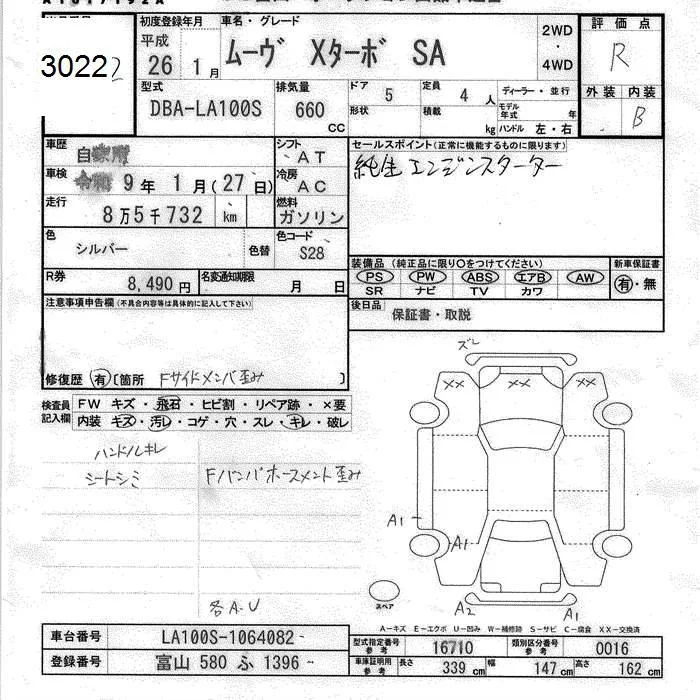 30222
初度登録年月 車名・グレード 2WD・4WD 評価点
平成 26 1月 ムーヴ Xターボ SA R
型式 排気量 ドア 5 定員 4人 ディーラー・並行 外装 内装
DBA-LA100S 660 CC 形状 積載 kg モデル年式 年 ハンドル 左・右 B
車歴 自家用 シフト AT セールスポイント(正常に機能するものに限ります)
車検 令和 9年 1月(27日) 冷房 AC 純正エンジンスターター
走行 8万5千732 km 燃料 ガソリン
色 シルバー 色替 色コード S28
装備品(純正品に限り○をつけてください) 新車保証書
PS PW ABS エアB AW 有・無
SR ナビ TV カワ
R券 8,490円 名変通知期限 月 日
後日品 保証書・取説
注意事項申告欄(不具合内容等は具体的に記入して下さい)
修復歴 有 〔箇所 Fサイドメンバ歪み 〕
検査員記入欄 FW キズ・飛石・ヒビ割・リペア跡・×要
内装 キズ・汚レ・コゲ・穴・スレ・キレ・破レ
ハンドルキレ
シートシミ Fバンパホースメント歪み
各A・U
ズレ
XX XX XX
A1
A1
スペア A2 A1
A-キズ E-エクボ U-凹み W-補修跡 S-サビ C-腐食 XX-交換済
車台番号 LA100S-1064082
登録番号 富山 580 ふ 1396
型式指定番号参考 16710 類別区分番号参考 0016
車庫証明用参考 長さ 339cm 幅 147cm 高さ 162cm